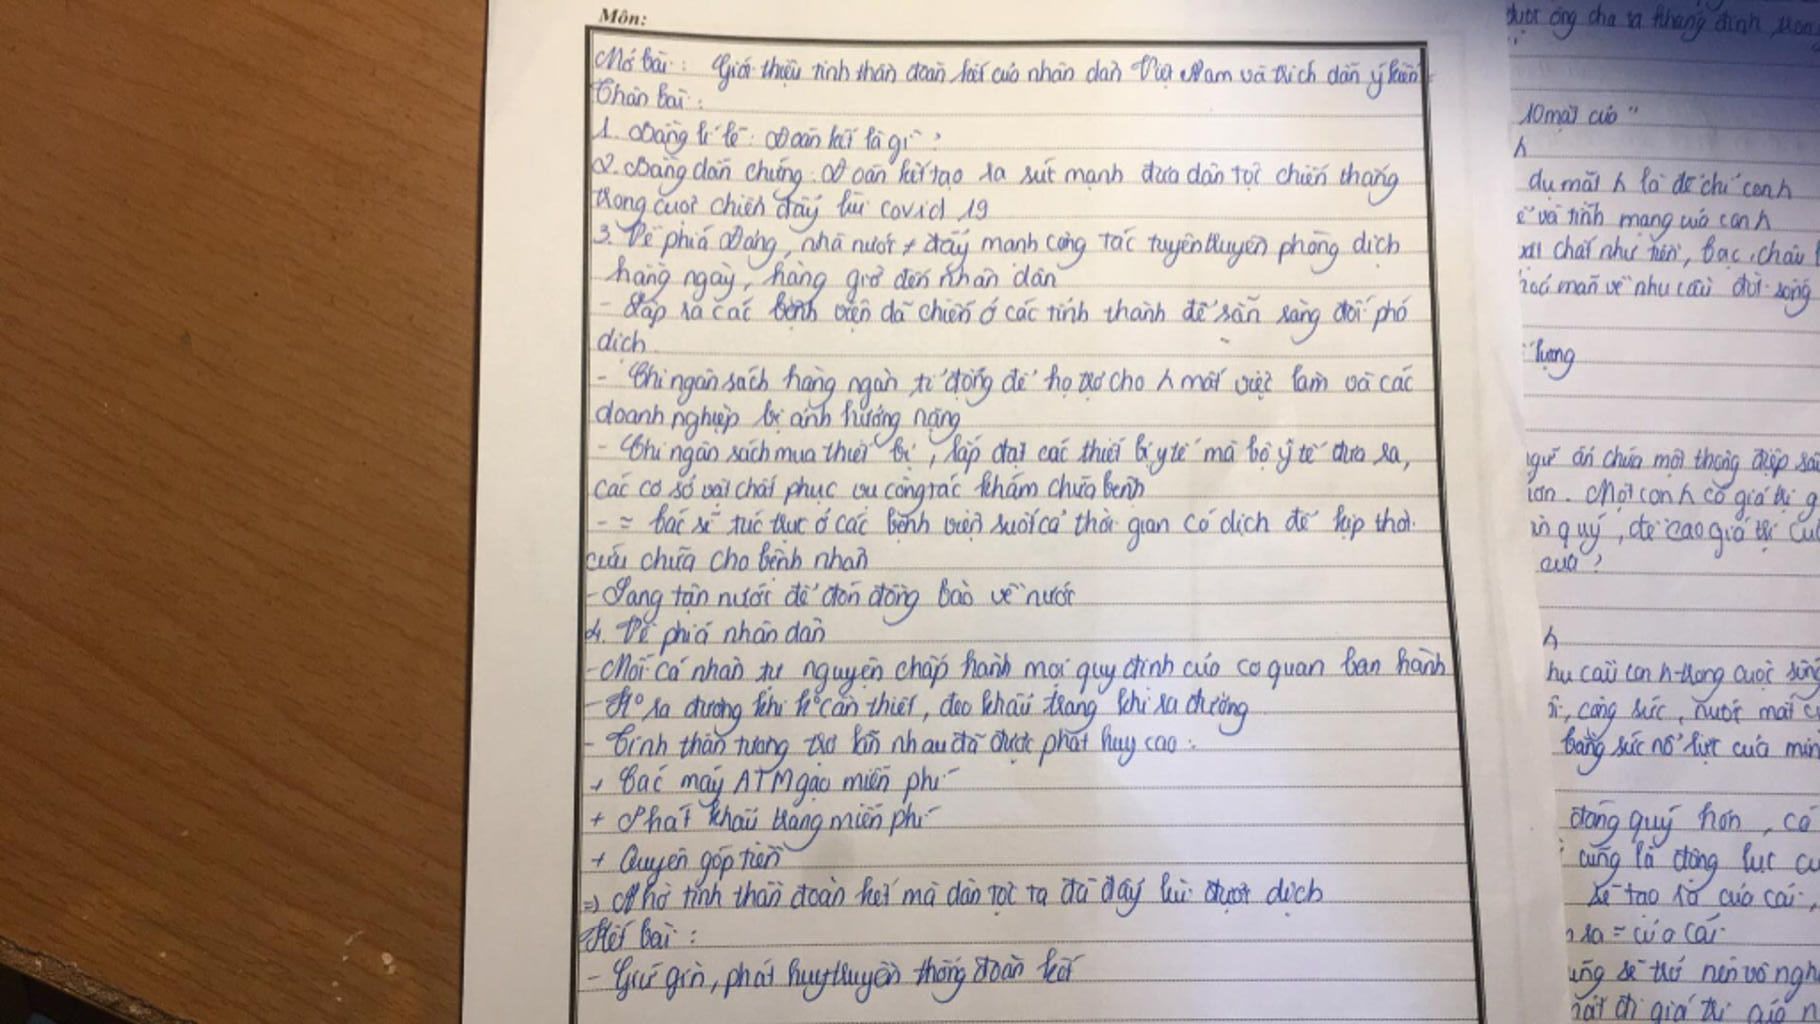 Môn:
Mở bài: Giới thiệu tinh thần đoàn kết của nhân dân Việt Nam và trích dẫn ý kiến
Thân bài:
1. Bằng lí lẽ: Đoàn kết là gì?
2. Bằng dẫn chứng: Đoàn kết tạo ra sức mạnh đưa dân tộc chiến thắng
trong cuộc chiến đẩy lùi covid 19
3. Về phía Đảng, nhà nước + đẩy mạnh công tác tuyên truyền phòng dịch
hằng ngày, hàng giờ đến nhân dân
- Lập ra các bệnh viện dã chiến ở các tỉnh thành để sẵn sàng đối phó
dịch
- Chi ngân sách hàng ngàn tỉ đồng để hỗ trợ cho h mất việc làm và các
doanh nghiệp bị ảnh hưởng nặng
- Chi ngân sách mua thiết bị, lắp đặt các thiết bị y tế mà bộ y tế đưa ra,
các cơ sở vật chất phục vụ công tác khám chữa bệnh
- = bác sĩ túc trực ở các bệnh viện suốt cả thời gian có dịch để kịp thời
cứu chữa cho bệnh nhân
- Sang tận nước để đón đồng bào về nước
4. Về phía nhân dân
- Mỗi cá nhân tự nguyện chấp hành mọi quy định của cơ quan ban hành
- Ko ra đường khi ko cần thiết, đeo khẩu trang khi ra đường
- Tinh thần tương trợ lẫn nhau đã được phát huy cao:
+ Các máy ATM gạo miễn phí
+ Phát khẩu trang miễn phí
+ Quyên góp tiền
=> Nhờ tinh thần đoàn kết mà dân tộc ta đã đẩy lùi được dịch
Kết bài:
- Giữ gìn, phát huy truyền thống đoàn kết
được ông cha ta khẳng định
10 mặt của"
h
dụ mặt h là để chỉ con h
và tính mạng của con h
chất như tiền, bạc, châu
mãn về nhu cầu đời sống
lượng
ngữ ẩn chứa một thông điệp
hơn. Một con h có giá trị
quý, đề cao giá trị
của?
h
nhu cầu con h trong cuộc sống
, công sức, nước mắt
bằng sức nỗ lực của
đáng quý hơn, có
cũng là động lực
sẽ tạo ra của cải,
ra = của cải
cũng sẽ trở nên vô
đi giá trị